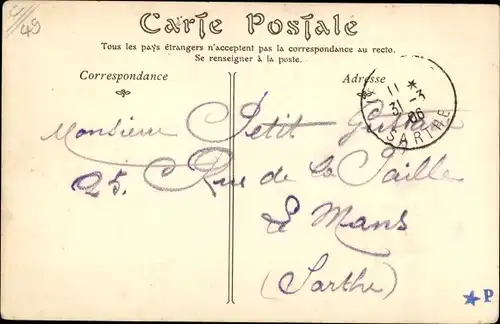 49
Carte Postale
Tous les pays étrangers n'acceptent pas la correspondance au recto.
Se renseigner à la poste.
Correspondance
Adresse
11 *
31 - 3
06
SARTHE
Monsieur Petit Gustave
25. Rue de la Paille
Le Mans
(Sarthe)
★ P